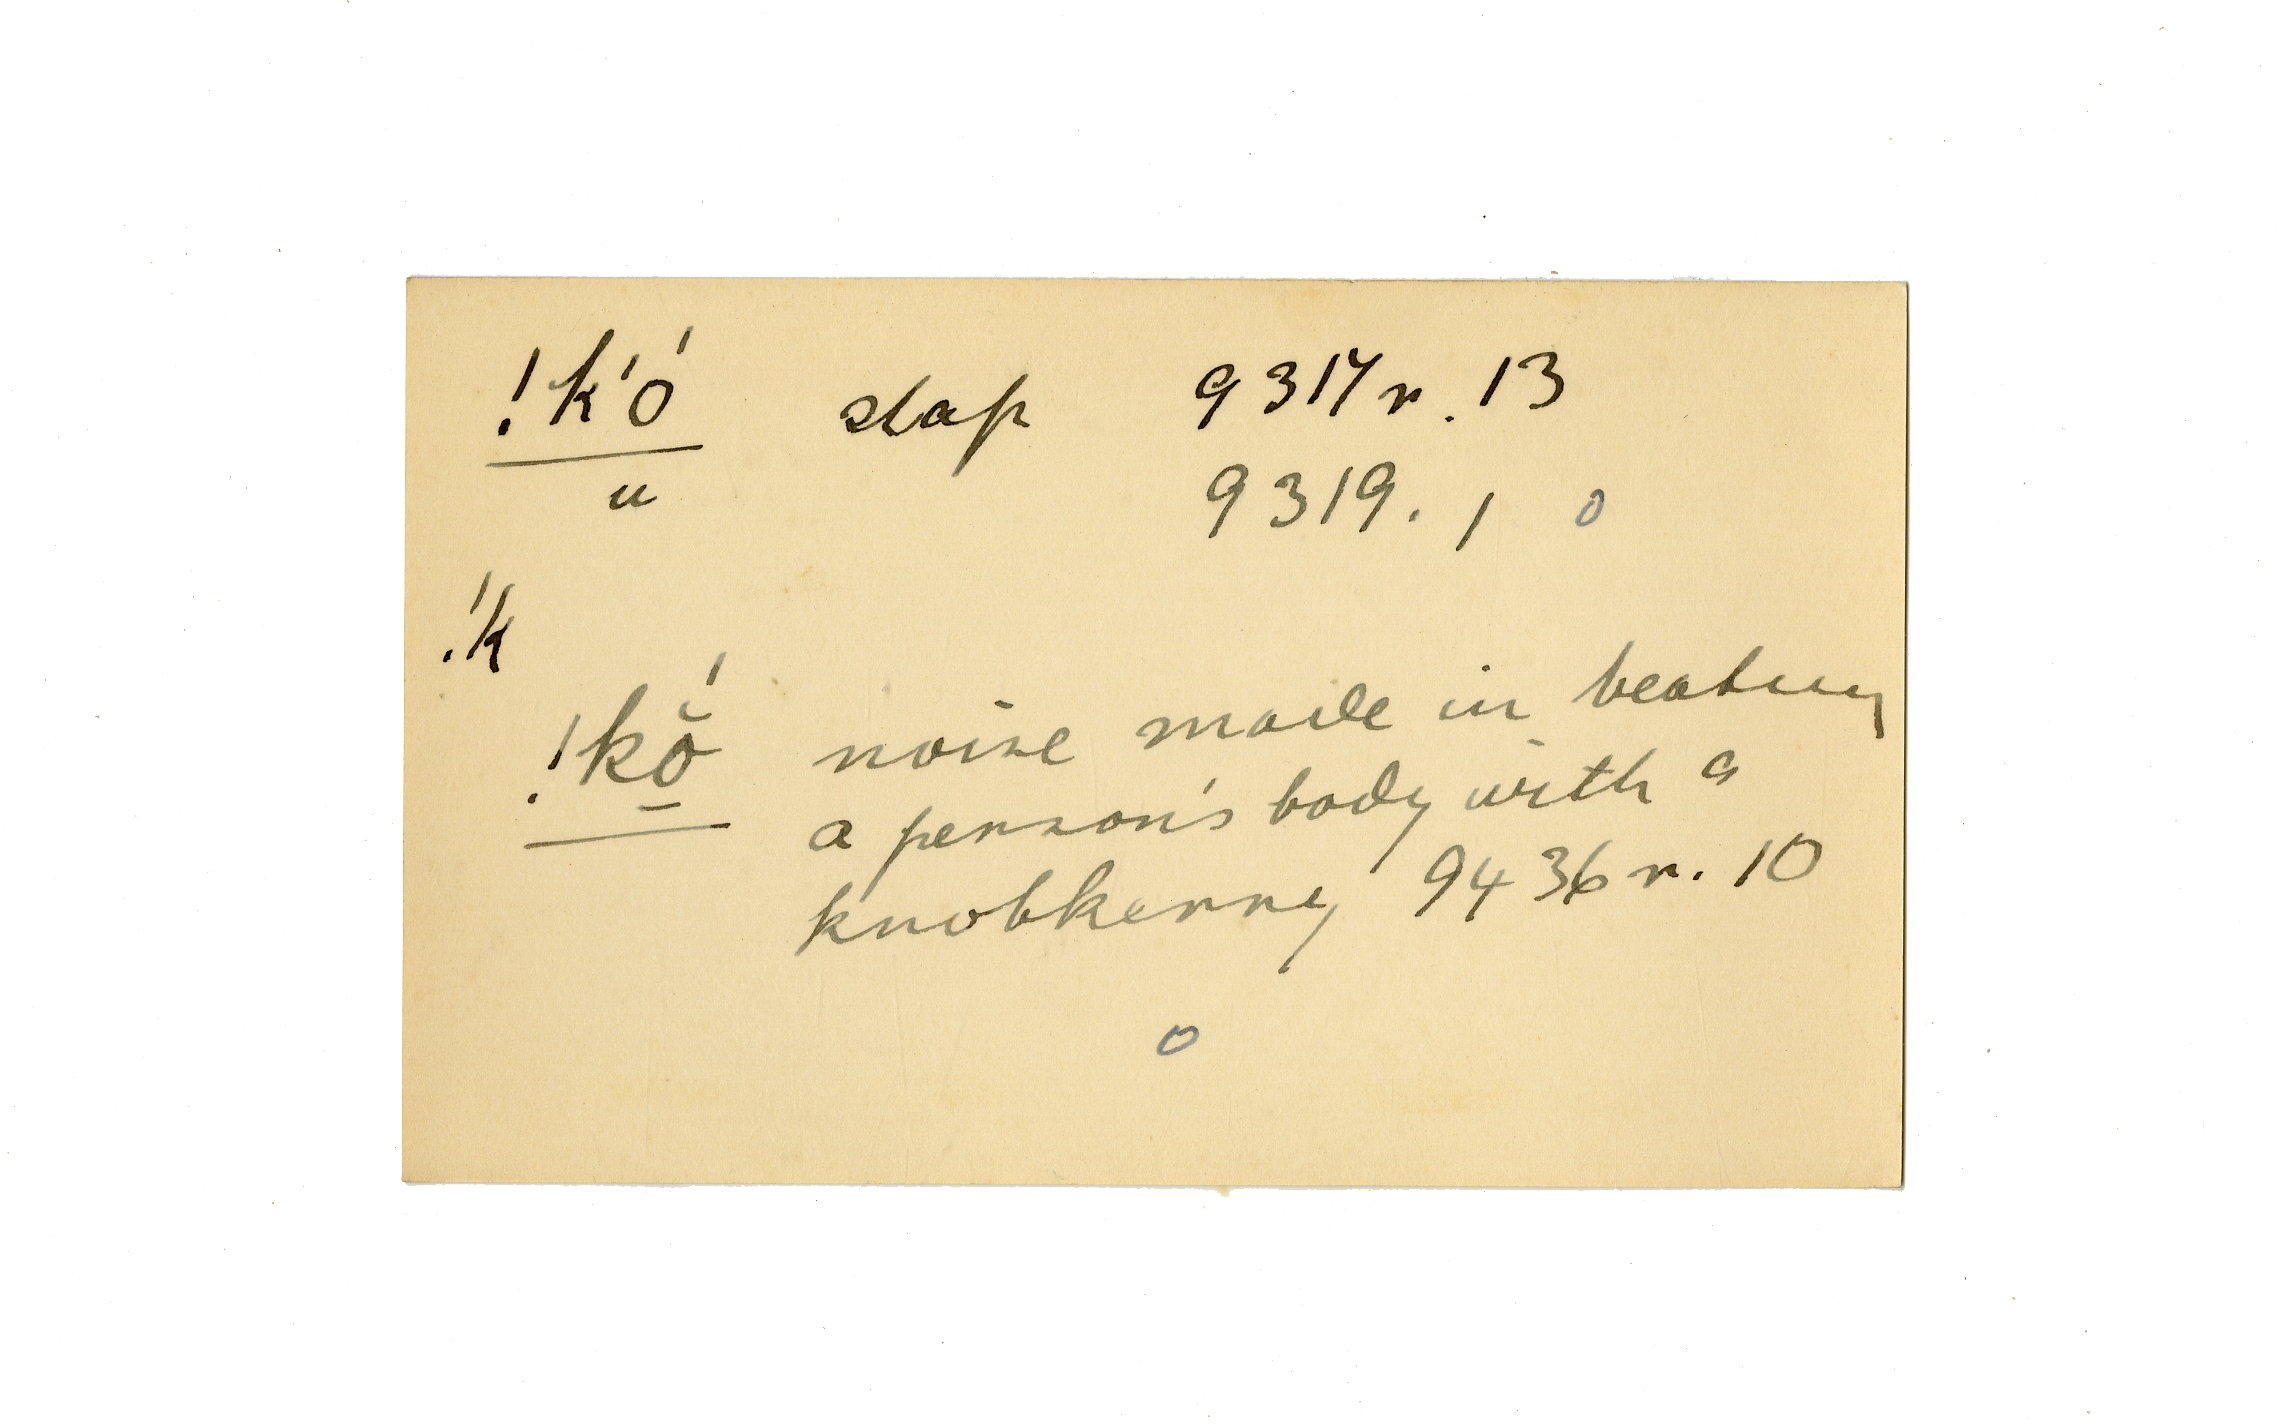 !k'ó slap 9317 r. 13
u 9319. 1 o
!k
!kŏ́ noise made in beating
a person's body with a
knobkerry 9436 r. 10
o